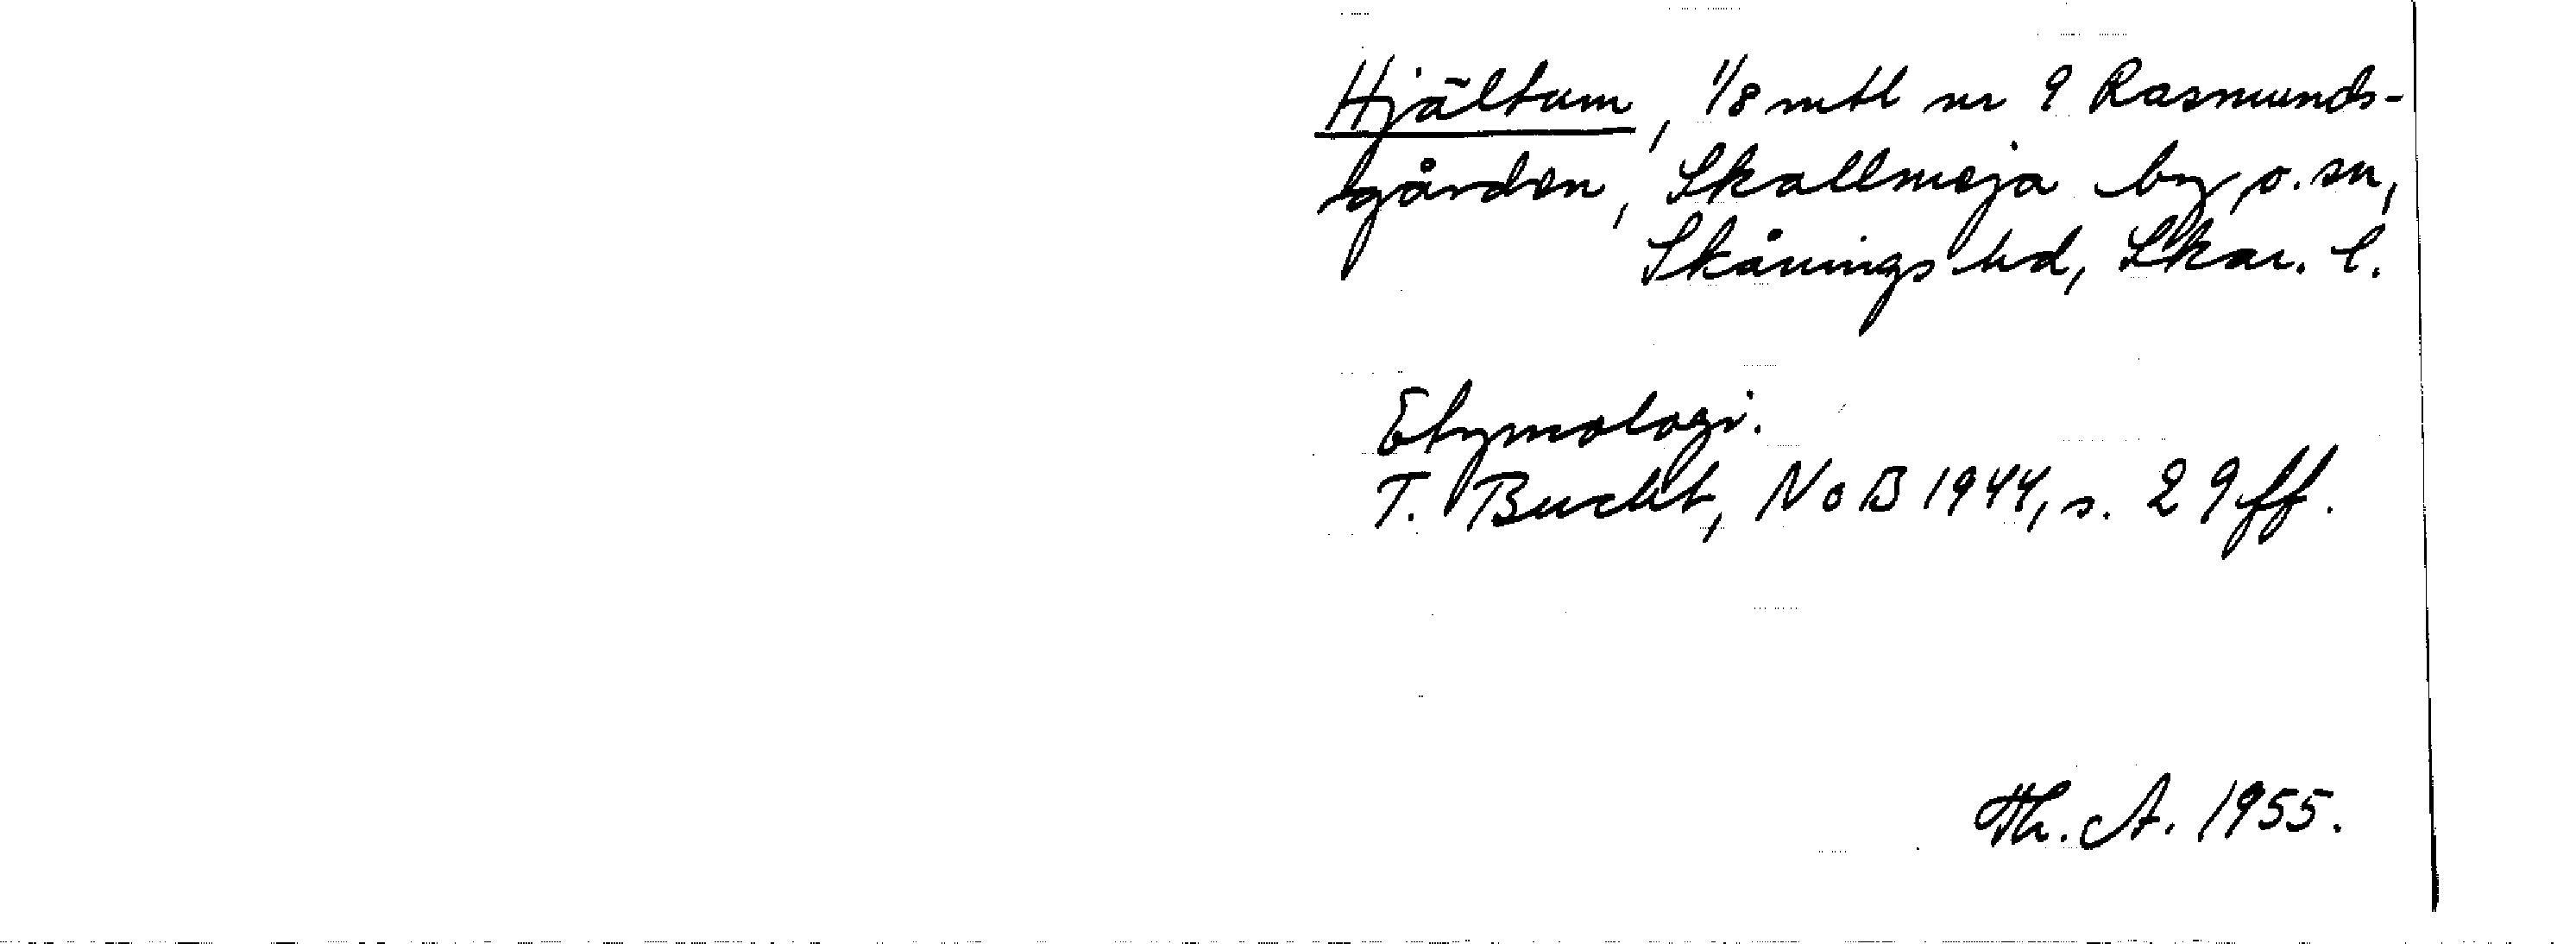 Hjältum, 1/8 mtl nr 9 Rasmunds-
gården, Skallmeja by o. sn,
Skånings hd, Skar. l.
Etymologi.
T. Bucht, NoB 1944, s. 29 ff.
Th. A. 1955.